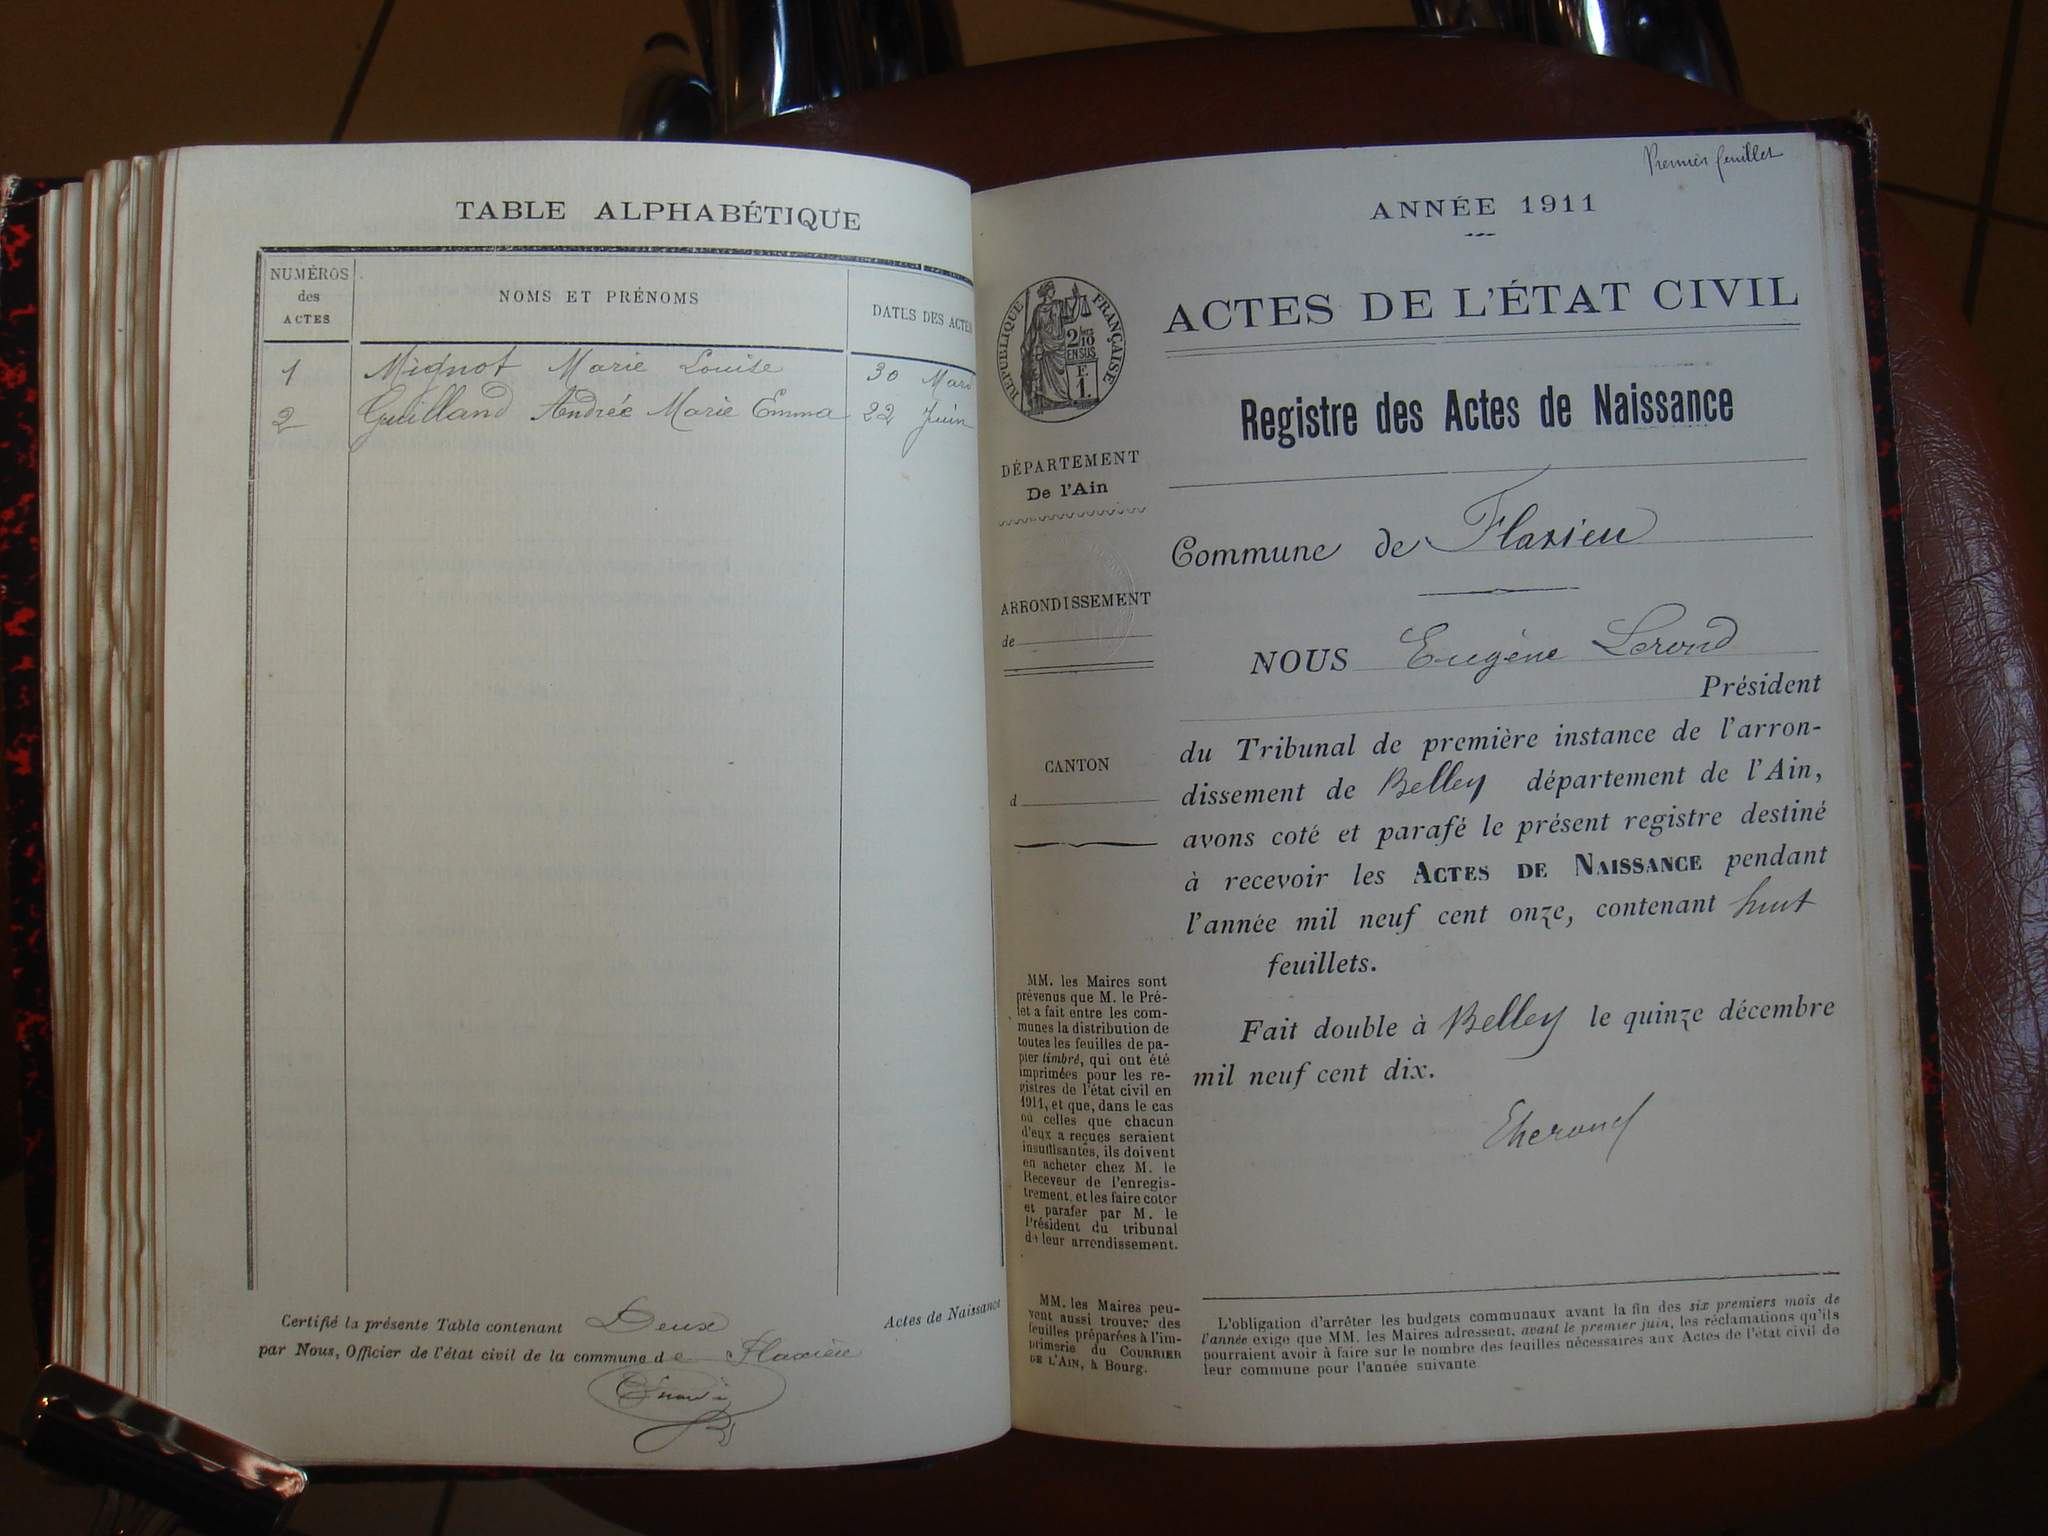 TABLE ALPHABÉTIQUE
NUMÉROS
des
ACTES
NOMS ET PRÉNOMS
DATES DES ACTES
1 Mignot Marie Louise 30 Mars
2 Guilland Andrée Marie Emma 22 Juin
Certifié la présente Table contenant Deux Actes de Naissance
par Nous, Officier de l'état civil de la commune de Flaxieu
Premier feuillet
ANNÉE 1911
RÉPUBLIQUE FRANÇAISE
2/10
EN SUS
E.
1.
ACTES DE L'ÉTAT CIVIL
Registre des Actes de Naissance
DÉPARTEMENT
De l'Ain
Commune de Flaxieu
ARRONDISSEMENT
de
NOUS Eugène
Président
du Tribunal de première instance de l'arron-
dissement de Belley département de l'Ain,
avons coté et parafé le présent registre destiné
à recevoir les ACTES DE NAISSANCE pendant
l'année mil neuf cent onze, contenant huit
feuillets.
Fait double à Belley le quinze décembre
mil neuf cent dix.
CANTON
d
MM. les Maires sont
prévenus que M. le Pré-
fet a fait entre les com-
munes la distribution de
toutes les feuilles de pa-
pier timbré, qui ont été
imprimées pour les re-
gistres de l'état civil en
1911, et que, dans le cas
où celles que chacun
d'eux a reçues seraient
insuffisantes, ils doivent
en acheter chez M. le
Receveur de l'enregis-
trement, et les faire coter
et parafer par M. le
Président du tribunal
de leur arrondissement.
MM. les Maires peu-
vent aussi trouver des
feuilles préparées à l'im-
primerie du COURRIER
DE L'AIN, à Bourg.
L'obligation d'arrêter les budgets communaux avant la fin des six premiers mois de
l'année exige que MM. les Maires adressent, avant le premier juin, les réclamations qu'ils
pourraient avoir à faire sur le nombre des feuilles nécessaires aux Actes de l'état civil de
leur commune pour l'année suivante